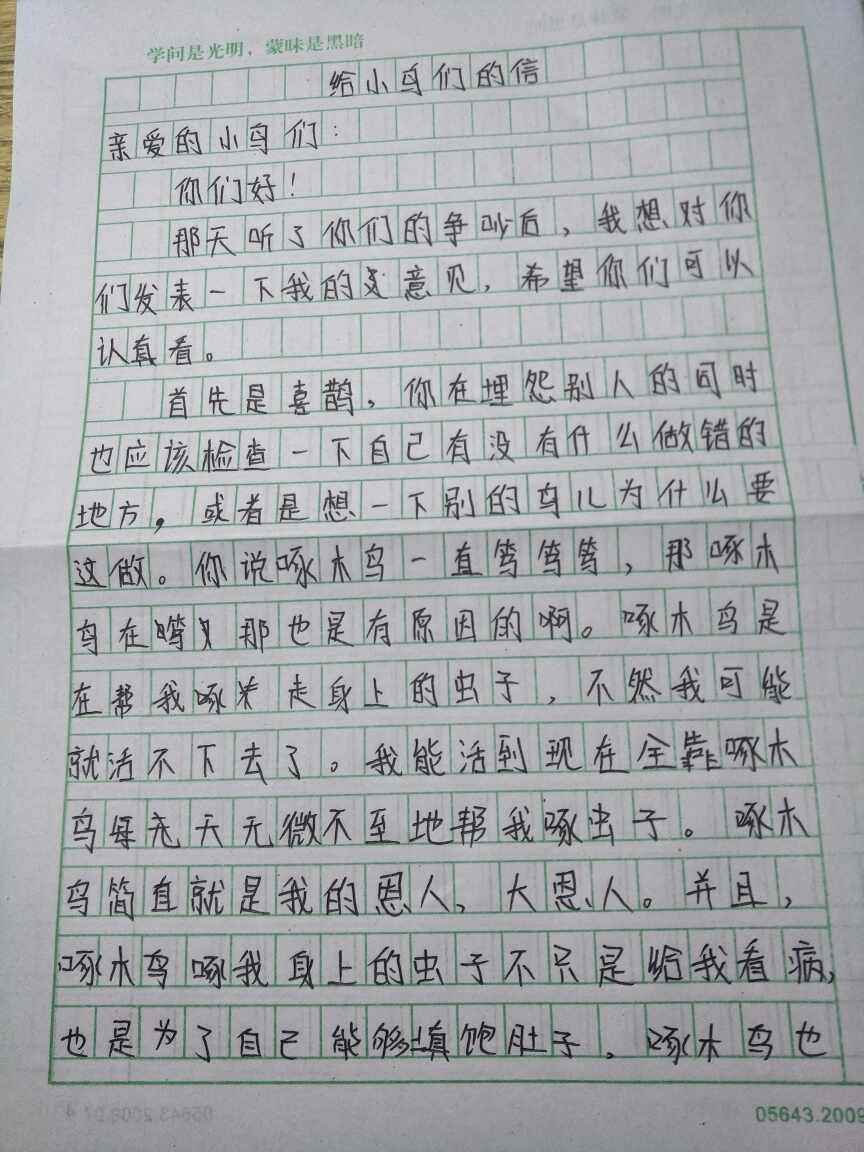 学问是光明，蒙昧是黑暗
给小鸟们的信
亲爱的小鸟们：
你们好！
那天听了你们的争吵后，我想对你
们发表一下我的意见，希望你们可以
认真看。
首先是喜鹊，你在埋怨别人的同时
也应该检查一下自己有没有什么做错的
地方，或者是想一下别的鸟儿为什么要
这做。你说啄木鸟一直笃笃笃，那啄木
鸟在那也是有原因的啊。啄木鸟是
在帮我啄走身上的虫子，不然我可能
就活不下去了。我能活到现在全靠啄木
鸟每天无微不至地帮我啄虫子。啄木
鸟简直就是我的恩人，大恩人。并且，
啄木鸟啄我身上的虫子不只是给我看病，
也是为了自己能够填饱肚子，啄木鸟也
05643.2009